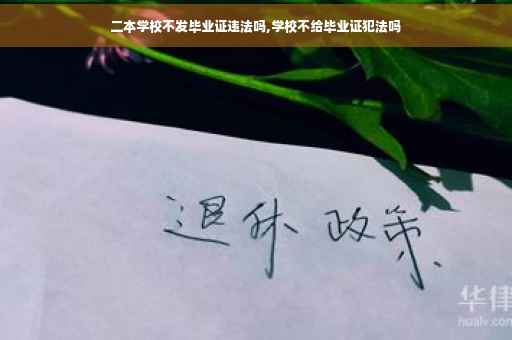 二本学校不发毕业证违法吗,学校不给毕业证犯法吗
退休 政策
华律
hualv.com